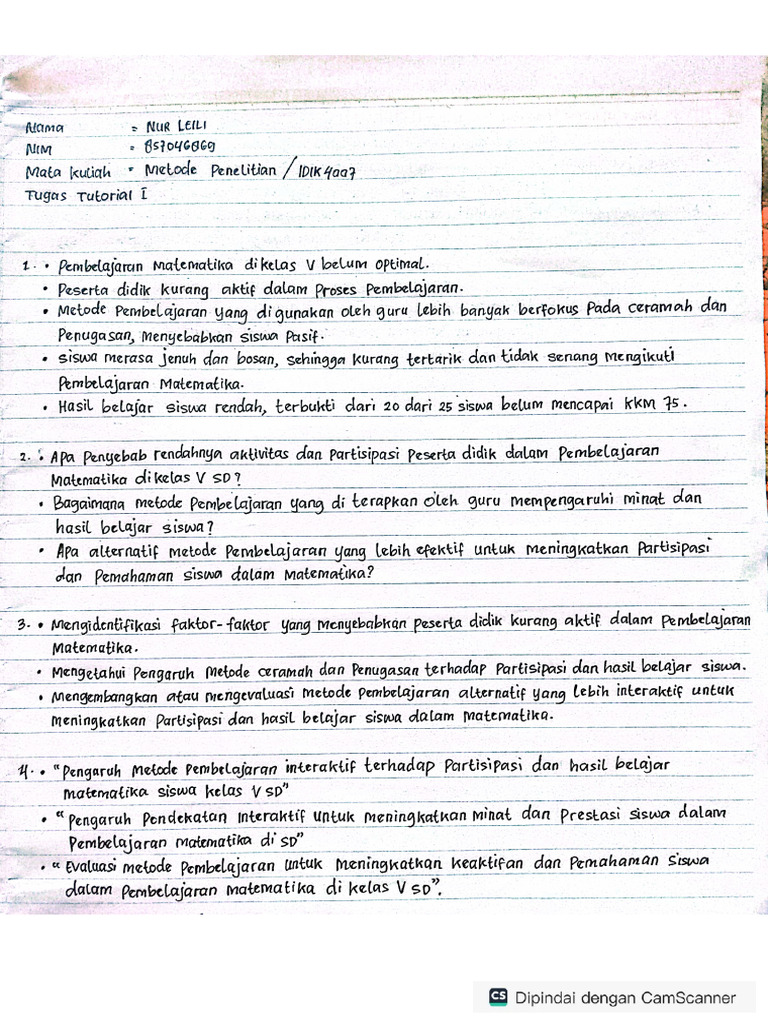 Nama = NUR LEILI
NIM = 857046869
Mata kuliah = Metode Penelitian / IDIK4007
Tugas Tutorial I
1. • Pembelajaran Matematika di kelas V belum optimal.
• Peserta didik kurang aktif dalam Proses Pembelajaran.
• Metode Pembelajaran yang digunakan oleh guru lebih banyak berfokus Pada ceramah dan
Penugasan, menyebabkan siswa Pasif.
• siswa merasa jenuh dan bosan, sehingga kurang tertarik dan tidak senang Mengikuti
Pembelajaran Matematika.
• Hasil belajar siswa rendah, terbukti dari 20 dari 25 siswa belum mencapai KKM 75.
2. • Apa Penyebab rendahnya aktivitas dan Partisipasi Peserta didik dalam Pembelajaran
Matematika di kelas V SD?
• Bagaimana metode Pembelajaran yang di terapkan oleh guru mempengaruhi minat dan
hasil belajar siswa?
• Apa alternatif metode Pembelajaran yang lebih efektif untuk meningkatkan Partisipasi
dan Pemahaman siswa dalam Matematika?
3. • Mengidentifikasi faktor-faktor yang menyebabkan peserta didik kurang aktif dalam Pembelajaran
Matematika.
• Mengetahui Pengaruh Metode ceramah dan Penugasan terhadap Partisipasi dan hasil belajar siswa.
• Mengembangkan atau mengevaluasi Metode Pembelajaran alternatif yang lebih interaktif untuk
meningkatkan Partisipasi dan hasil belajar siswa dalam Matematika.
4. • "Pengaruh Metode Pembelajaran interaktif terhadap Partisipasi dan hasil belajar
matematika siswa kelas V SD"
• "Pengaruh Pendekatan Interaktif Untuk Meningkatkan Minat dan Prestasi siswa dalam
Pembelajaran matematika di SD"
• "Evaluasi metode Pembelajaran Untuk Meningkatkan Keaktifan dan Pemahaman Siswa
dalam Pembelajaran matematika di kelas V SD".
CS Dipindai dengan CamScanner